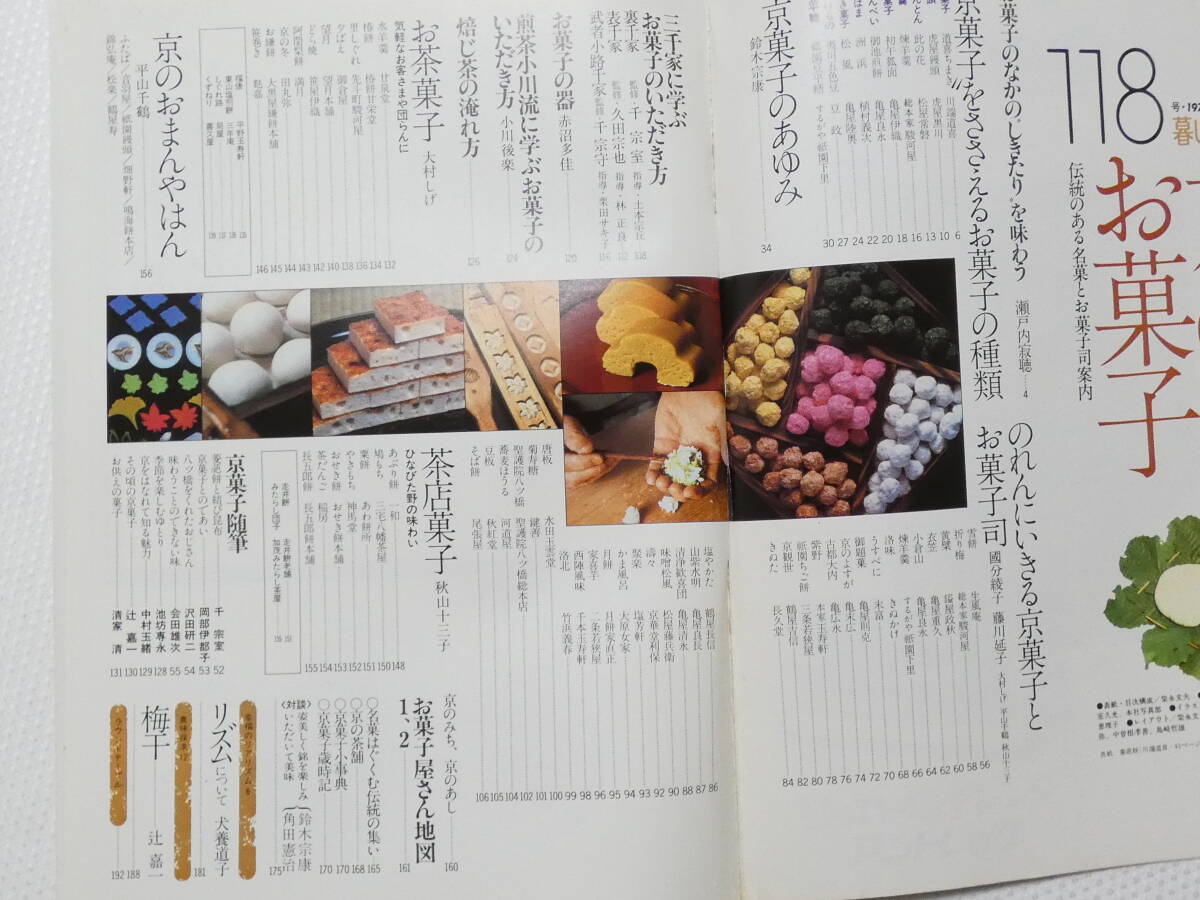 118
お菓子
伝統のある名菓とお菓子司案内
菓子のなかの“しきたり”を味わう 瀬戸内寂聴 4
京菓子をささえるお菓子の種類
道喜ちまき 川端道喜 6
虎屋饅頭 虎屋黒川 10
此の花 松屋常磐 13
煉羊羹 総本家駿河屋 16
初午狐面 亀屋伊織 18
御池煎餅 亀屋良永 20
洲浜 植村義次 22
松風 亀屋陸奥 24
夷川五色豆 豆政 27
するがや祇園下里 30
京菓子のあゆみ
鈴木宗康
34
三千家に学ぶ
お菓子のいただき方
裏千家 監修・千宗室 指導・土本宗丘 108
表千家 監修・久田宗也 指導・林正良 112
武者小路千家 監修・千宗守 指導・栗田サキ子 116
お菓子の器 赤沼多佳 120
煎茶小川流に学ぶお菓子の
いただき方 小川後楽 124
焙じ茶の淹れ方 126
お茶菓子 大村しげ
気軽なお客さまや団らんに
水羊羹 甘泉堂 132
椿餅 椿餅甘栄堂 134
里しぐれ 先斗町駿河屋 136
夕ばえ 御倉屋 138
望月 望月本舗 140
どら焼 笹屋伊織 142
阿闍梨餅 満月 143
京の冬 田丸弥 144
お鎌餅 大黒屋鎌餅本舗 145
笹巻き 麩嘉 146
福俵 平野玉寿軒
東山塩煎餅 三年庵
しぐれ路
くずねり 喜久屋
京のおまんやはん
平山千鶴
156
ふたば/音羽屋/祇園饅頭/畑野軒/鳴海餅本店/
錦弘庵/松楽/鶴屋寿
のれんにいきる京菓子と
お菓子司 國分綾子 藤川延子 大村しげ 平山千鶴 秋山十三子
雪餅 生風庵 56
折り梅 総本家駿河屋 58
黄檗 鎰屋政秋 60
衣笠 亀屋重久 62
小倉山 亀屋良永 64
煉羊羹 するがや祇園下里 66
洛味 きぬかけ 68
うすべに 末富 70
御題菓 亀屋則克 72
京のよすが 亀末広 74
古都大内 亀広永 76
紫野 本家玉寿軒 78
祇園ちご餅 三条若狭屋 80
京観世 鶴屋吉信 82
きぬた 長久堂 84
塩やかた 鶴屋長信 86
山紫水明 亀屋良長 87
清浄歓喜団 亀屋清永 88
味噌松風 松屋藤兵衛 90
濤々 京華堂利保 92
聚楽 塩芳軒 93
かま風呂 大原女家 94
月餅 月餅家直正 95
家喜芋 二条若狭屋 96
西陣風味 千本玉寿軒 98
洛北 竹濱義春 99
唐板 水田玉雲堂 100
菊寿糖 鍵善 101
聖護院八ツ橋 聖護院八ツ橋総本店 102
蕎麦ほうる 河道屋 104
豆板 秋紅堂 105
そば餅 尾張屋 106
茶店菓子
ひなびた野の味わい 秋山十三子
あぶり餅 一和 148
鳩もち 三宅八幡茶屋 150
粟餅 あわ餅所 151
やきもち 神馬堂 152
おせき餅 おせき餅本舗 153
茶だんご 稲房 154
長五郎餅 長五郎餅本舗 155
走井餅 走井餅老舗
みたらし団子 加茂みたらし茶屋
京菓子随筆
菱葩餅と結び昆布 千宗室 52
京菓子とのであい 岡部伊都子 53
八ツ橋をくれたおじさん 沢田研二 54
味わうことのできない味 会田雄次 55
季節を楽しむゆとり 池坊専永 128
京をはなれて知る魅力 中村玉緒 129
その頃の京菓子 辻嘉一 130
お供えの菓子 清家清 131
京のみち、京のあし 160
お菓子屋さん地図
1、2 161
○名菓はぐくむ伝統の集い 165
○京の茶舗 168
○京菓子小事典 170
○京菓子歳時記 170
〈対談〉姿美しく銘を楽しみ
いただいて美味 鈴木宗康 角田憲治 175
リズムについて 犬養道子 181
梅干 辻嘉一 188
192